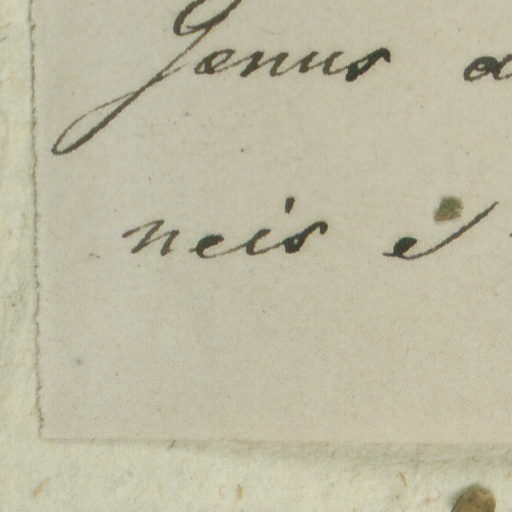 Genus a
neis et